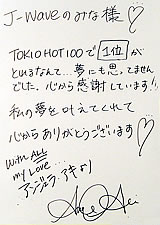 J-WAVEのみな様♡
TOKIO HOT 100で「1位」が
とれるなんて…夢にも思ってません
でした。心から感謝しています!!
私の夢を叶えてくれて
心からありがとうございます♡
With ALL
my Love...
アンジェラ・アキより